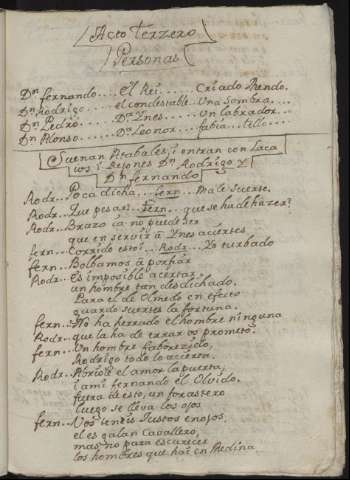 Acto terzero
Personas
Dn fernando.... El Rei..... Criado Mendo.
Dn Rodrigo.... el condestable. Una Sombra....
Dn Pedro...... Da Ynes...... Un labrador...
Dn Alonso..... Da Leonor... fabia... tello....
Suenan Atabales, i entran con Laca
ios i Rejones Dn Rodrigo y
Dn fernando
Rodr.. Poca dicha.... fern... Mala Suerte.
Rodr.. Que pesar! fern... que se ha de hazer?
Rodr.. Brazo ia no puede ser
que en servir a Ynes aciertes
fern.. Corrido estoi. Rodr... Yo turbado
fern.. Bolbamos a porfiar
Rodr.. es imposible acertar
un hombre tan desdichado.
Para el de Olmedo en efeto
guardo suertes la fortuna.
fern.. No ha herrado el hombre ninguna
Rodr.. que la ha de errar os prometo.
fern.. Un hombre faborezido,
Rodrigo todo lo acierta.
Rodr.. Abriole el amor la puerta,
i a mi fernando el Olvido.
fuera de esto, un forastero
luego se lleva los ojos
fern.. Vos teneis Justos enojos.
el es galan Cavallero,
mas no para escurecer
los hombres que hai en Medina